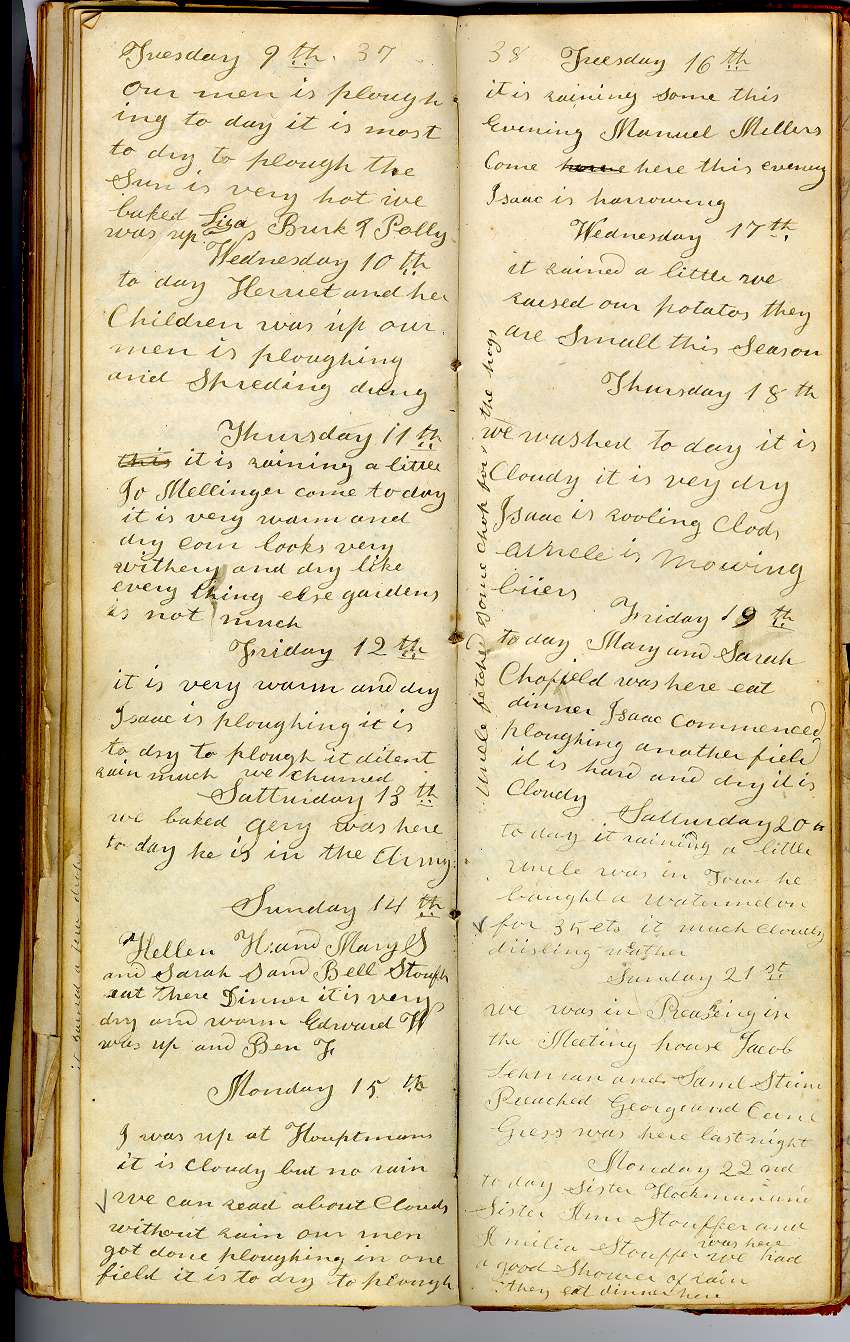 Tuesday 9th. 37
our men is plough
ing to day it is most
to dry to plough the
Sun is very hot we
baked Liza Burk & Polly
was up
Wednesday 10th
to day Herriet and her
Children was up our
men is ploughing
and Spreding dung
Thursday 11th
this it is raining a little
Jo Mellinger come to day
it is very warm and
dry corn looks very
withery and dry like
every thing else gardens
is not much
Friday 12th
it is very warm and dry
Isaac is ploughing it is
to dry to plough it dident
rain much we churned
Satturday 13th
we baked gery was here
to day he is in the Army.
Sunday 14th
Hellen H. and Mary S
and Sarah S and Bell Stouffr
eat there Dinner it is very
dry and warm Edward W
was up and Ben F
Monday 15th
I was up at Houptmans
it is cloudy but no rain
we can read about Clouds
without rain our men
got done ploughing in one
field it is to dry to plough
it rained a few drops
38 Tuesday 16th
it is raining some this
Evening Manuel Mellers
Come home here this evening
Isaac is harrowing
Wednesday 17th
it rained a little we
raised our potatos they
are Small this Season
Thursday 18th
we washed to day it is
Cloudy it is very dry
Isaac is rooling Clods
Uncle is Mowing
briers
Uncle fetched some chop for the hogs
Friday 19th
to day Mary and Sarah
Chofield was here eat
dinner Isaac Commenced
ploughing another field
it is hard and dry it is
Cloudy
Satturday 20th
to day it raining a little
Uncle was in Town he
baught a watermelon
for 35 cts it much cloudy
driisling wather
Sunday 21st
we was in Preaching in
the Meeting house Jacob
Lehman and Saml Stim
Preached George and Cami
Gress was here last night
Monday 22nd
to day Sister Hockman and
Sister Ann Stouffer and
Amilia Stouffer was here we had
a good Shower of rain
they eat dinner here